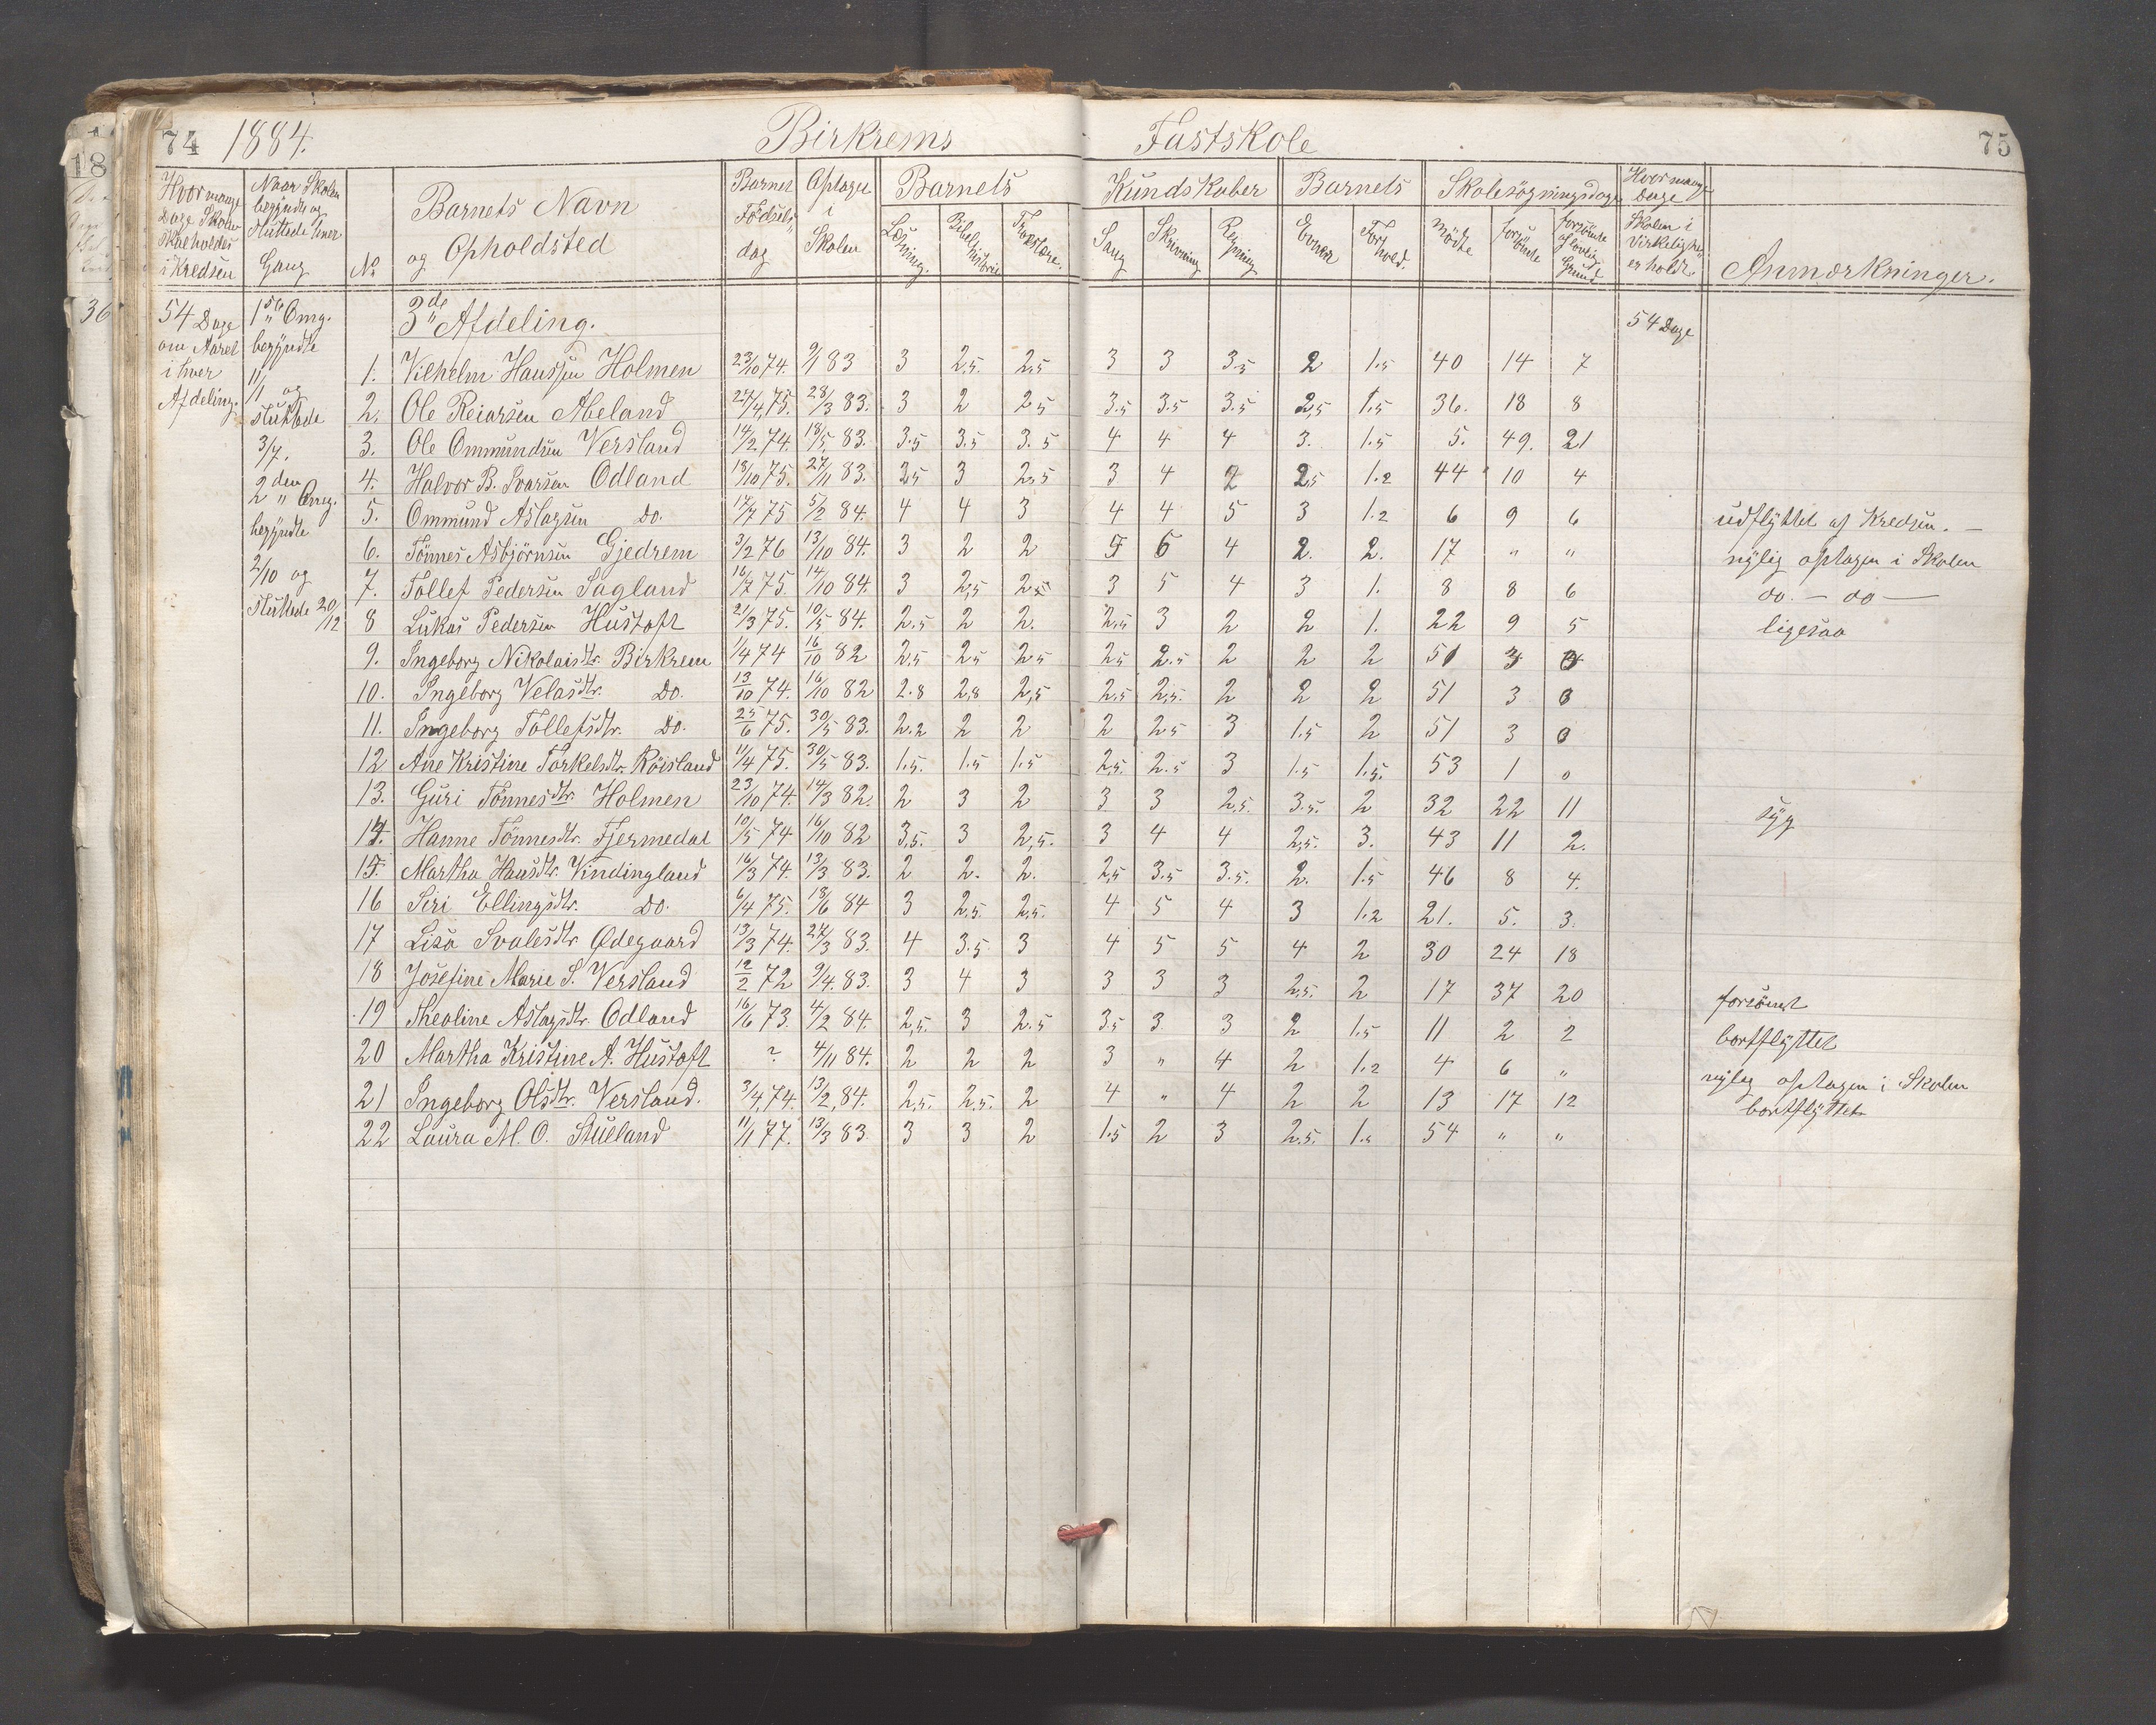 74 1884. Birkrems Fastskole 75
18
36
Hvormange Dage Skolen skal holdes i Kredsen
Naar Skolen begyndte og sluttede hver Gang
No
Barnets Navn og Opholdsted
Barnets Fødselsdag
Optaget i Skolen
Barnets Kundskaber
Læsning. Bibelhistorie Troeslære. Sang Skrivning Regning
Barnets
Evner Forhold.
Skolesøgningsdage
mødte forsømte forsømte af lovlig Grund
Hvormange Dage Skolen i Virkeligheden er holdt.
Anmærkninger.
54 Dage om Aaret i hver Afdeling.
1ste Omg. begyndte 11/1 og sluttede 3/7.
2den Omg. begyndte 2/10 og sluttede 20/12
3de Afdeling. 54 Dage
1. Vilhelm Hanssen Holmen 23/10 74. 9/1 83 3 2.5. 2.5 3 3 3.5 2 1.5 40 14 7
2. Ole Reiarsen Abeland 27/4 75. 28/3 83. 3 2 2.5 3.5 3.5 3.5 2,5 1.5 36. 18 8
3. Ole Ommundsen Versland 14/2 74. 18/5 83. 3.5 3.5 3.5 4 4 4 3. 1.5 5. 49. 21
4. Halvor B. Ivarsen Odland 18/10 75. 27/11 83. 3.5 3 2.5 3 4 2 2.5 1.2 44 10 4
5. Ommund Aslagsen Do. 14/7 75 5/2 84. 4 4 3 4 4 5 3 1.2 6 9 6 udflyttet af Kredsen. —
6. Tönnes Asbjörnsen Gjedrem 3/2 76 13/10 84. 3 2 2 5 6 4 2. 2. 17 " " nylig optagen i Skolen
7. Tollef Pedersen Sagland 16/7 75. 14/10 84. 3 2,5 2.5 3 5 4 3 1. 8 8 6 do. — do —
8 Lukas Pedersen Hustoft 21/3 75. 10/5 84. 2.5 2 2. 2.5 3 2 2 1. 22 9 5 ligesaa
9. Ingeborg Nikolaisdtr. Birkrem 1/4 74 16/10 82 2.5 2.5 2.5 2.5 2.5 2 2 2 51 3 0
10. Ingeborg Velasdtr. Do. 13/10 74. 16/10 82 2.8 2,8 2,5 2.5 2,5. 2 2 2 51 3 0
11. Ingeborg Tollefsdtr. Do. 25/6 75. 30/5 83. 2.2 2 2 2 2.5 3 1.5 2 51 3 0
12 Ane Kristine Torkelsdtr. Röisland 11/4 75. 30/5 83. 1.5. 1.5 1.5 2,5. 2.5 3 1.5 1.5. 53 1 0
13. Guri Tönnesdtr. Holmen 23/10 74. 14/3 82. 2 3 2 3 3 2.5. 3.5. 2 32 22 11 syg
14. Hanne Tönnesdtr. Fjermedal 10/5 74 16/10 82 3.5. 3 2,5. 3 4 4 2,5. 3. 43 11 2.
15. Martha Hansdtr. Vindingland 16/3 74. 13/3 83. 2 2. 2. 2,5 3.5 3.5. 2. 1.5 46 8 4.
16 Siri Ellingsdtr. Do. 6/4 75. 18/6 84 3 2.5. 2.5. 4 5 4 3 1.2 21. 5. 3.
17 Lisa Svalesdtr. Ødegaard 13/3 74. 27/3 83. 4 3.5 3 4 5 5 4 2 30 24 18
18 Josefine Marie S. Versland 12/2 72 9/4. 83. 3 4 3 3 3 3 2,5. 2 17 37 20 forsömt
19 Theoline Aslagsdtr. Odland 16/6 73. 4/2 84. 2,5. 3 2.5 3.5 3 3 2 1.5 11 2 2 bortflyttet
20 Martha Kristine A. Hustoft ? 4/11 84. 2 2 2 3 " 4 2 1.2 4 6 " nylig optagen i Skolen
21 Ingeborg Olsdtr. Versland. 3/4 74. 13/2, 84. 2,5. 2,5. 2 4 " 4 2 2 13 17 12 bortflyttet
22 Laura M. O. Stueland 11/1 77. 13/3 83. 3 3 2 1.5 2 3 2.5. 1.5 54 " "